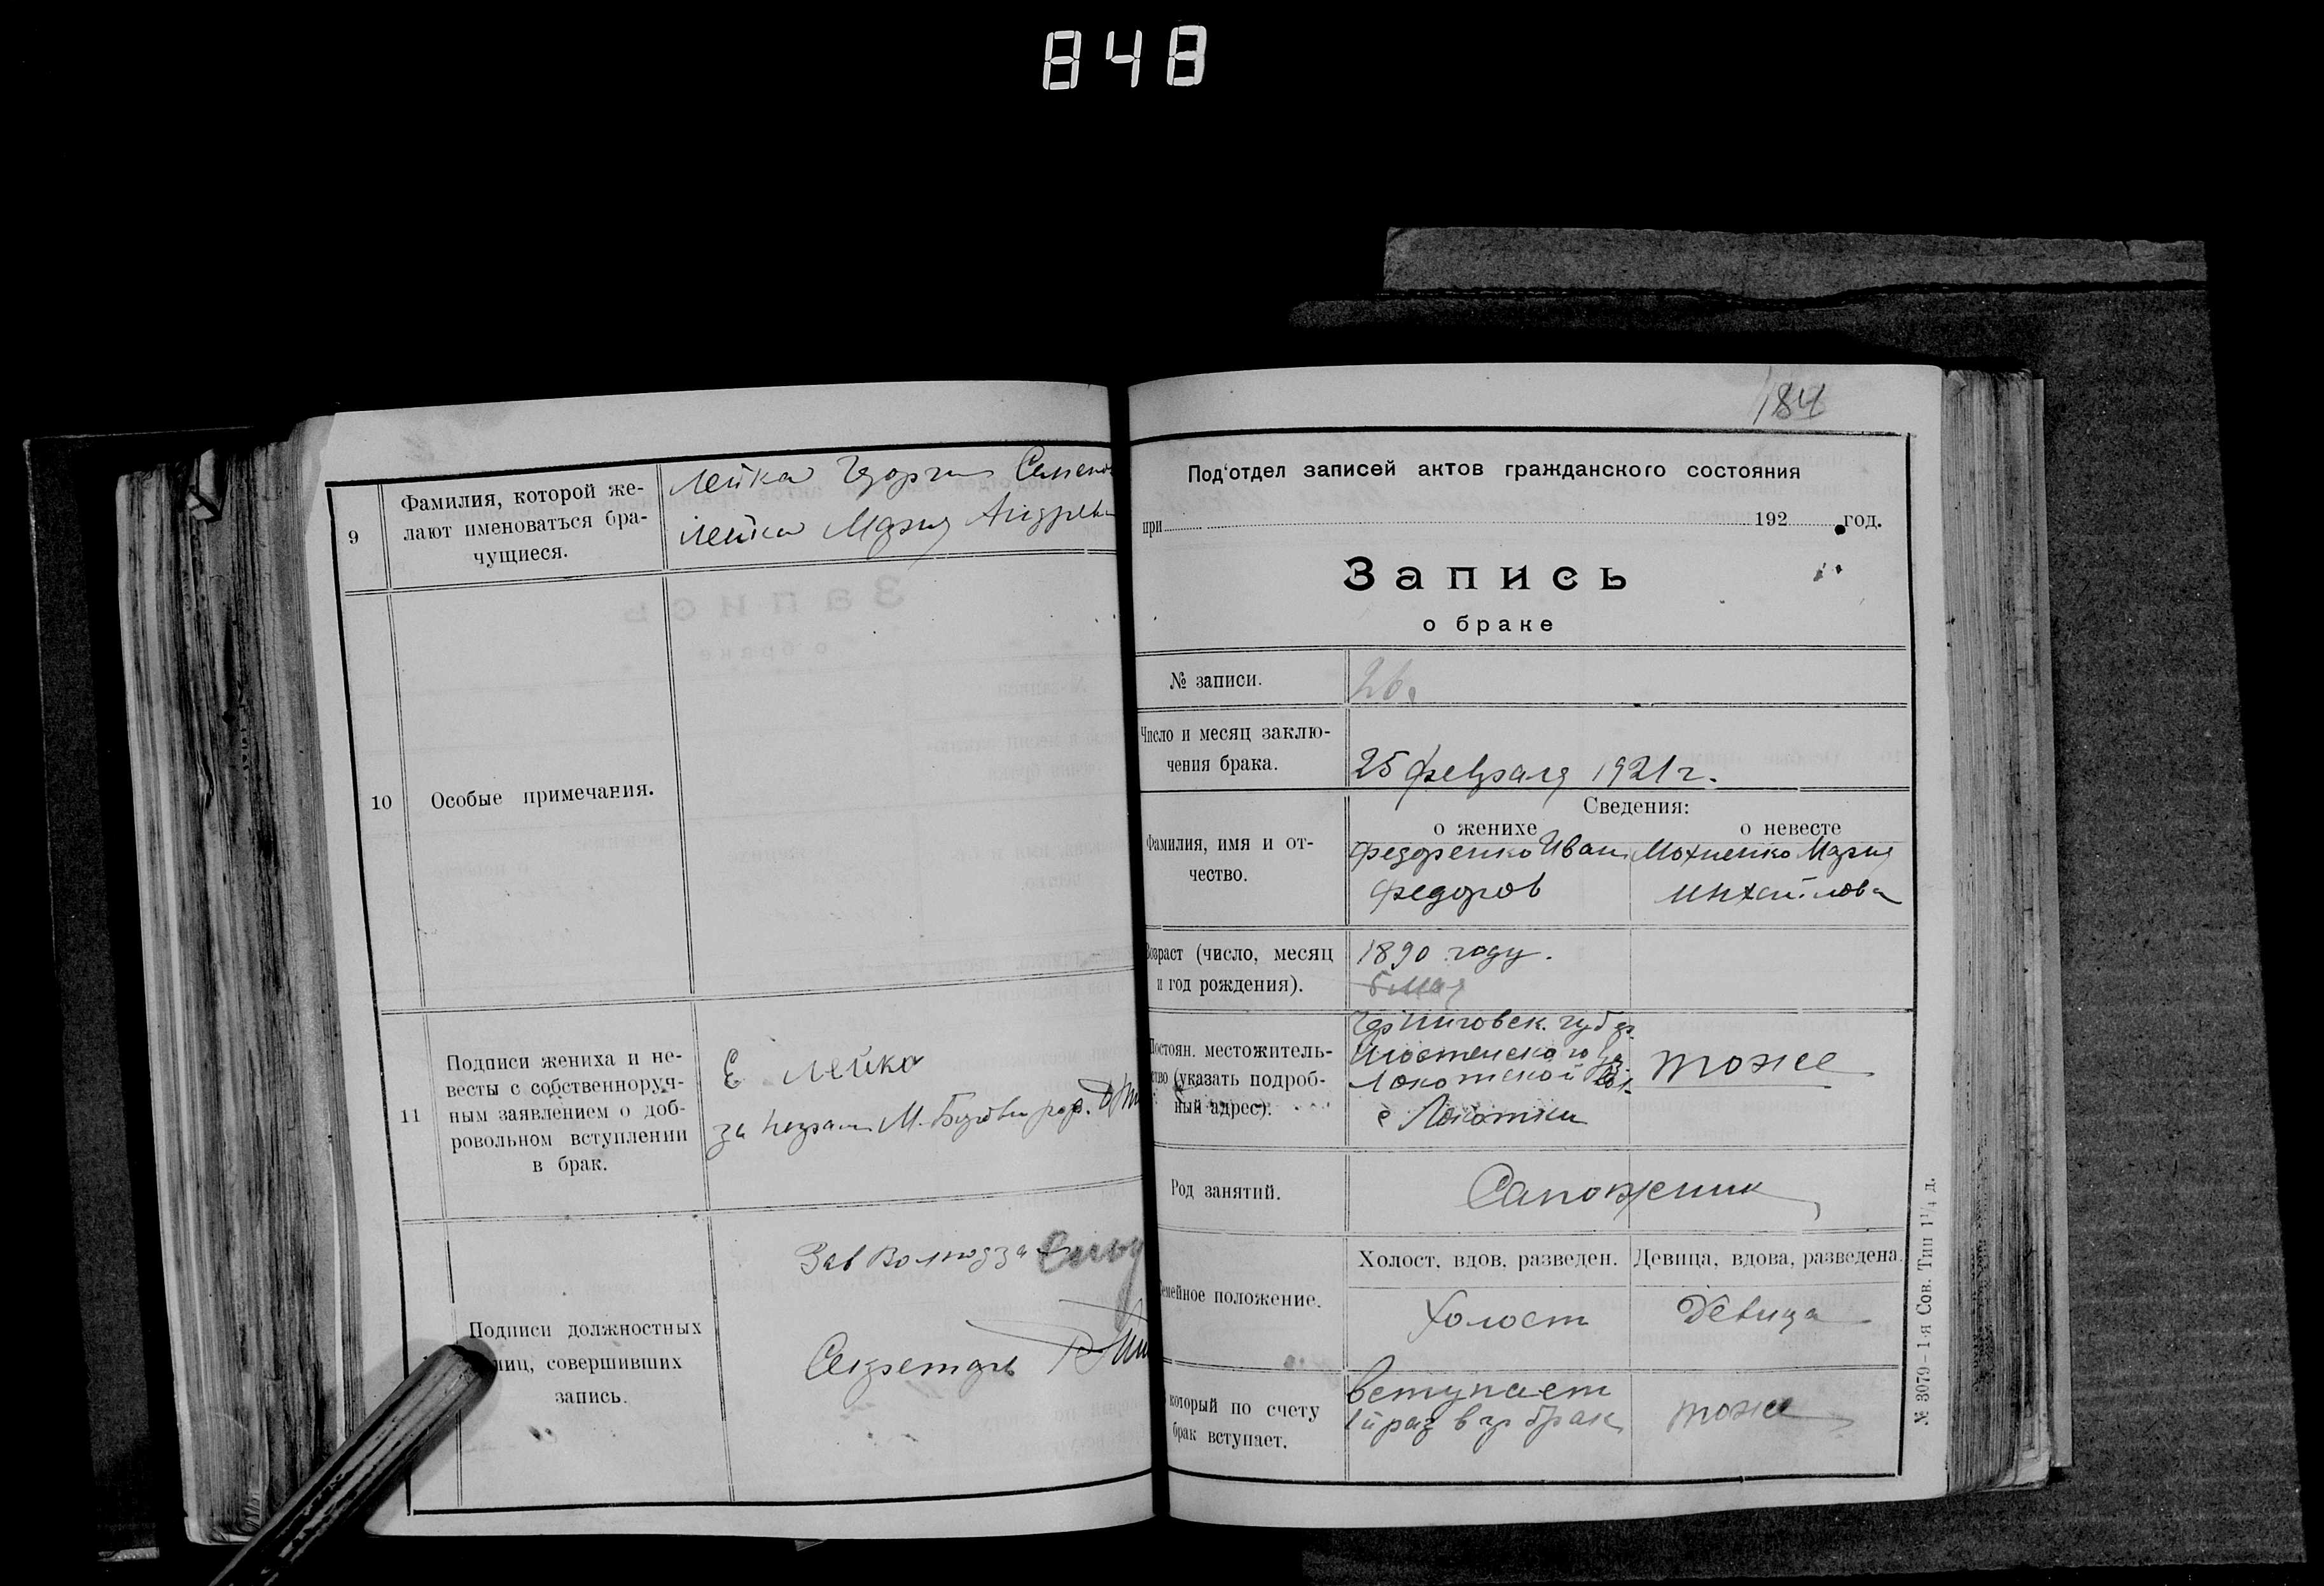 848
9
Фамилия, которой же-
лают именоваться бра-
чущиеся.
Лейка Георгий
Лейка Мария
10
Особые примечания.
11
Подписи жениха и не-
весты с собственноруч-
ным заявлением о доб-
ровольном вступлении
в брак.
Е Лейко
за неграм М.
Подписи должностных
лиц, совершивших
запись.
Зав
Секретарь
184
Под'отдел записей актов гражданского состояния
при 192 год.
Запись
о браке
№ записи.
26
Число и месяц заклю-
чения брака.
25 февраля 1921 г.
Сведения:
о женихе
о невесте
Фамилия, имя и от-
чество.
Федоренко Иван
Федоров
Мохненко Мария
Михайлова
Возраст (число, месяц
и год рождения).
1890 году.
Постоян. местожитель-
ство (указать подроб-
ный адрес).
Черниговск. губер.
Шостенского уез.
Локотской вол.
с Локотки
тоже
Род занятий.
Сапожник
Семейное положение.
Холост, вдов, разведен.
Девица, вдова, разведена.
Холост
Девица
который по счету
брак вступает.
вступает
1й раз в гр брак
тоже
№ 3079–1-я Сов. Тип 1¹/₄ д.